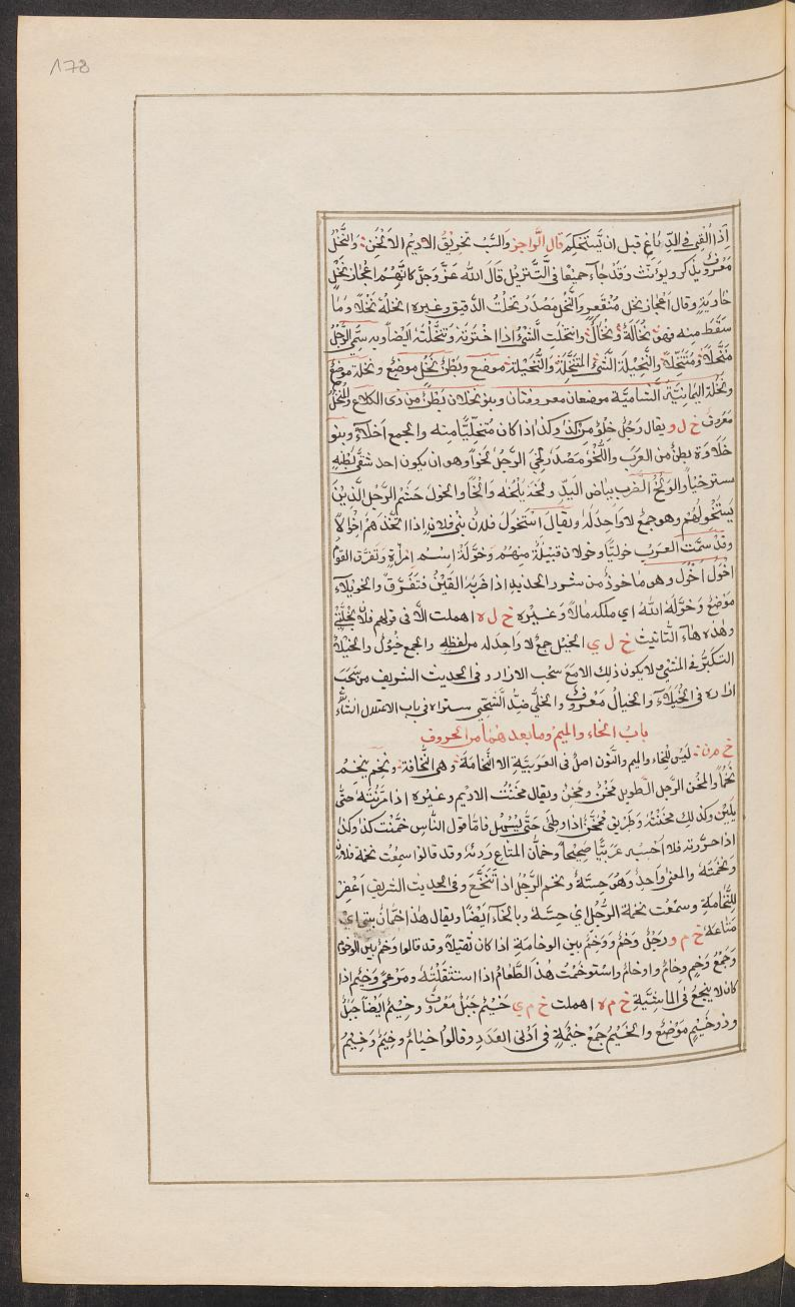 ١٦٨
اِذَا اُلْقِيَ فِي الدِّبَاغِ قبل ان يَسْتَحْكِمَ قال الرَّاجز وَالسَّبُّ تخرِيْقُ الاَدِيْمِ الاَلْخَنِ وَالنَّخْلُ
مَعْرُوفٌ يذكر ويؤنث وَقَدْ جَآءَ جميْعًا فى التَّنْزِيْل قَالَ الله عَزَّ وَجَلَّ كَاَنَّهُم اعجَاز نَخْلٍ
خَاوِيَةٍ وقال اَعْجَاز نخل مُنْقَعِرٍ وَالنَّخْل مَصْدَر نخلْتُ الدَّقيق وغيره انخلهُ نَخْلًا وَمَا
سَقَط منه فهو نُخَالَةٌ وَنُخَالٌ وانتخلت الشَّيْءَ اذا اخْتَرْتَهُ وَتَنَخَّلْتَهُ اَيْضًا وبه سمّي الرَّجُلُ
مُنَخَّلًا وَمُتَنَخِّلًا وَالنَّخِيْلَة الشَّيْءُ المُتَنَخَّلَةُ وَالنُّخَيْلَة موضع وبطنُ نَخْلٍ موضعٌ ونخلة موضِعٌ
ونَخْلَة اليمَانِيَّة الشَّامِيَّة موضعان معروفان وبنو نَخْلَان بَطْنٌ من ذى الكلاع والمُنْخُلُ
مَعْرُوف خ ل و يقال رَجُل خِلْوٌ من كذا وكذا اذا كان مُتَخَلِّيًا منه والجمع اَخْلَآءٌ وبنو
خَلَاوَة بطنٌ من العرَب وَاللَّخْو مَصْدَر لَخِيَ الرَّجُل لخوًا وهو ان يكون احد شقَّى بَطْنِهِ
مسترخيًا وَالوَلْخُ الضَّرب بِبَاض اليَدِ ولخَهُ يَلِخُهُ وَلْخًا وَالخَوَل حَشَم الرَّجُل الَّذِيْنَ
يَسْتَخْوِلُهُمْ وهو جمعٌ لا وَاحِدَ لَهُ ويقال اسْتَخْوَلَ فلانٌ بَنِي فلانٍ اذا اتَّخَذَهُمْ اَخْوَالًا
وقَدْ سمَّت العرَبُ خَوْلِيًّا وخَولان قبيْلَةٌ منهُم وخَوْلَةُ اِسْم اِمْرَأَةٍ وَتفَرَّق القوم
اَخْوَلَ اَخْوَلَ وهو مَاخوذٌ من شرر الحديد اذا ضربَهُ القَيْنُ فَتَفَرَّقَ والخُوَيْلَاء
مَوْضعٌ وَخَوَّلَهُ اللهُ اى ملَّكه مالًا وَغَيْرَهُ خ ل ه اهملت الَّا فى قولهم فلان
وهٰذه هَاءُ التَّانِيْث خ ل ي الخَيْل جَمْعٌ لا وَاحِدَ له من لفظِهِ والجمع خُيُول والخُيَلاءُ
التَّكَبُّر فى المَشْي ولا يكون ذلك الا مَعَ سَحْبِ الازار وفى الحديث الشريف من سَحَبَ
ازاره فى الخُيَلَآءِ والخيالُ مَعْرُوفٌ والخَلِيُّ ضِدُّ الشَّجِيّ ستراه فى باب الاعتلال انشآء الله
بابُ الخاء والميم وما بعدهُما من الحروف
خ م ن لَيْسَ للخاء والميم والنُّون اصلٌ فى العَرَبِيَّةِ الا النُّخَامَةُ وَهى النُّخَاعَة ونخِم ينخَم
نَخْمًا وَالمَخْن الرَّجل الطَّويل مَخْنٌ ومَخْنٌ ويقال مخَنْتُ الاديم وغيره اذا مَرَّنْتَهُ حَتَّى
يَلِيْنَ وكذٰلك مَخَّنْتُهُ وَطَرِيْق مُمَخَّنٌ اذا وطِئَ حَتَّى يسْهل فامَّا قول النَّاس خَمَّنْت كذا وكذا
اذا حزَّرته فلا احْسبُه عَرَبيًّا صَحِيْحًا وخَمَّان المتَاعِ رَدِيُّهُ وقد قالوا سمِعْت نخمة فلان
ونَحْمَتَهُ والمعنى وَاحِدٌ وَهُوَ حِسُّهُ ونخم الرَّجُل اذا تَنَخَّعَ وفى الحديث الشريف اَعْفِرْ
للنُّخَامَةِ وسَمِعْت نخمة الرَّجُل اى حِسَّهُ وبالحَآءِ اَيْضًا ويقال هٰذا خَمَّانُ بيتى اى
متَاعَهُ خ م و رجُلٌ وَخْمٌ وَوَخِيْمٌ بين الوخامة اذا كان ثقيلًا وقد قالوا وخم بين الوخوم
وَجَمْعُ وَخِمٍ وِخامٌ واوخامٌ واستوخَمْت هٰذ الطَّعامَ اذا استثقَلْتَهُ ومَرعىً وَخِيْم اذا
كان لا ينجعُ فى المَاشِيَةِ خ م ه اهملت خ م ي خَيْمٌ جَبَل مَعْرُوف وخِيْمٌ اَيْضًا جَبَلٌ
وذو خَيْمٍ مَوْضِعٌ والخَيْمُ جَمْعُ خَيْمَةٍ فى اَدْنَى العَدَدِ وقالوا خيَامٌ وخِيَمٌ وَخَيْمٌ